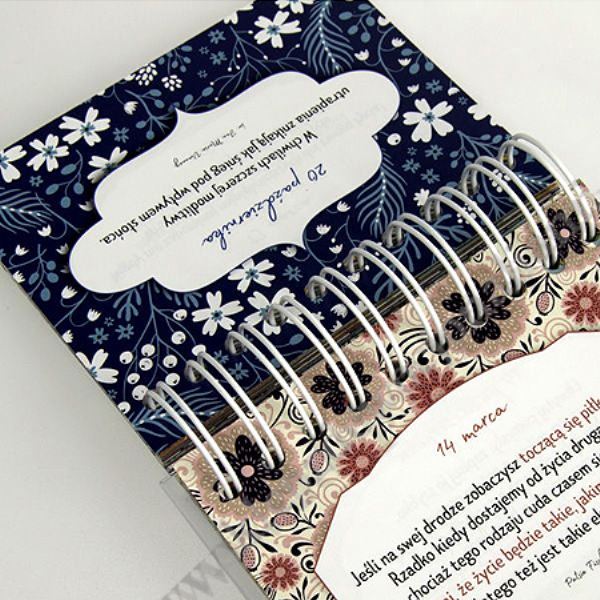 20 października
W chwilach szczerej modlitwy
utrapienia znikają jak śnieg pod wpływem słońca.
św. Jan Maria Vianney
14 marca
Jeśli na swej drodze zobaczysz toczącą się piłk
Rzadko kiedy dostajemy od życia drug
chociaż tego rodzaju cuda czasem si
i, że życie będzie takie, jakim
tego też jest takie ek